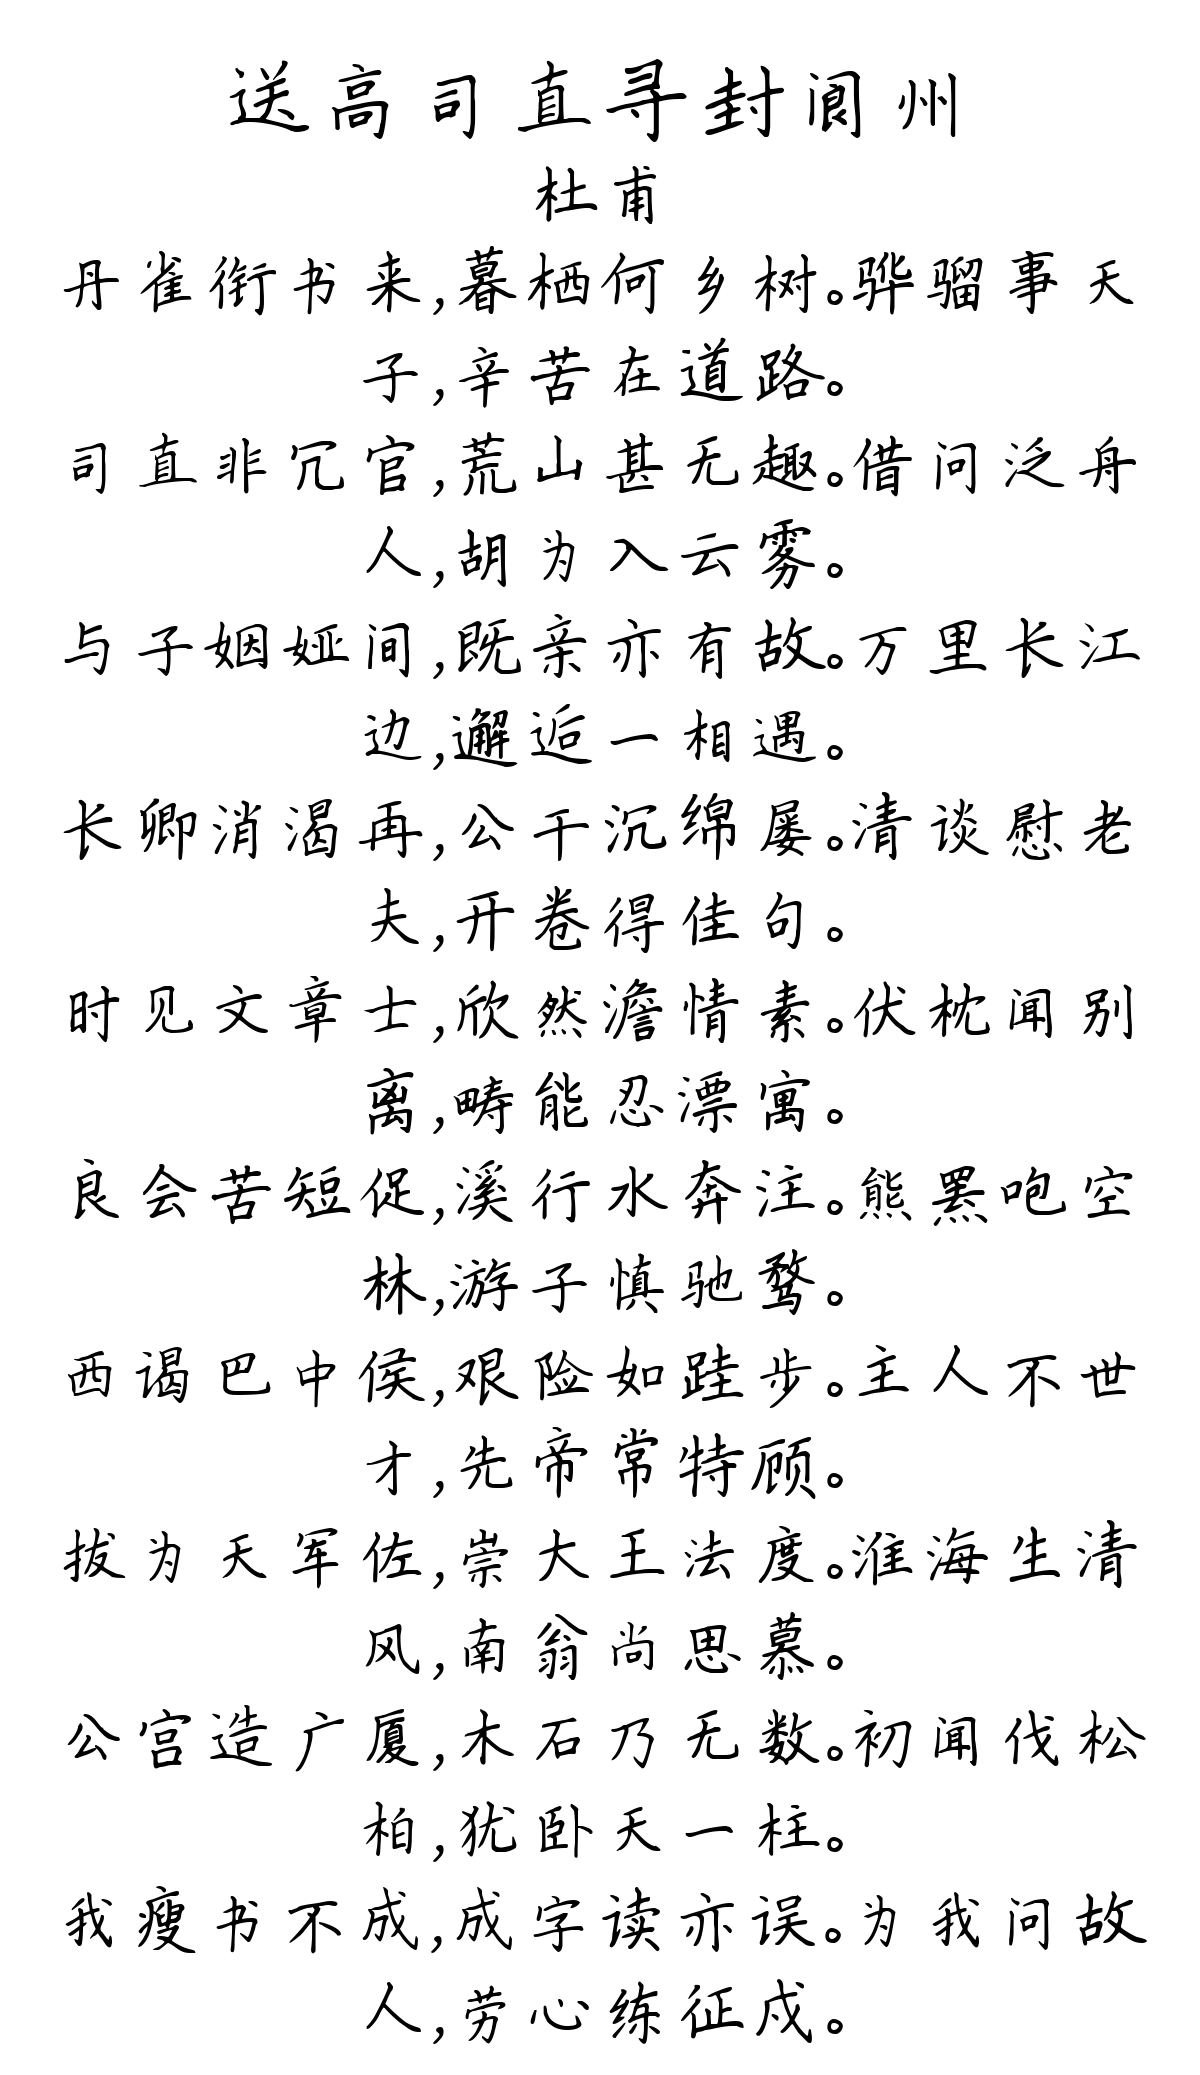 送高司直寻封阆州
杜甫
丹雀衔书来,暮栖何乡树。骅骝事天
子,辛苦在道路。
司直非冗官,荒山甚无趣。借问泛舟
人,胡为入云雾。
与子姻娅间,既亲亦有故。万里长江
边,邂逅一相遇。
长卿消渴再,公干沉绵屡。清谈慰老
夫,开卷得佳句。
时见文章士,欣然澹情素。伏枕闻别
离,畴能忍漂寓。
良会苦短促,溪行水奔注。熊罴咆空
林,游子慎驰骛。
西谒巴中侯,艰险如跬步。主人不世
才,先帝常特顾。
拔为天军佐,崇大王法度。淮海生清
风,南翁尚思慕。
公宫造广厦,木石乃无数。初闻伐松
柏,犹卧天一柱。
我瘦书不成,成字读亦误。为我问故
人,劳心练征戍。